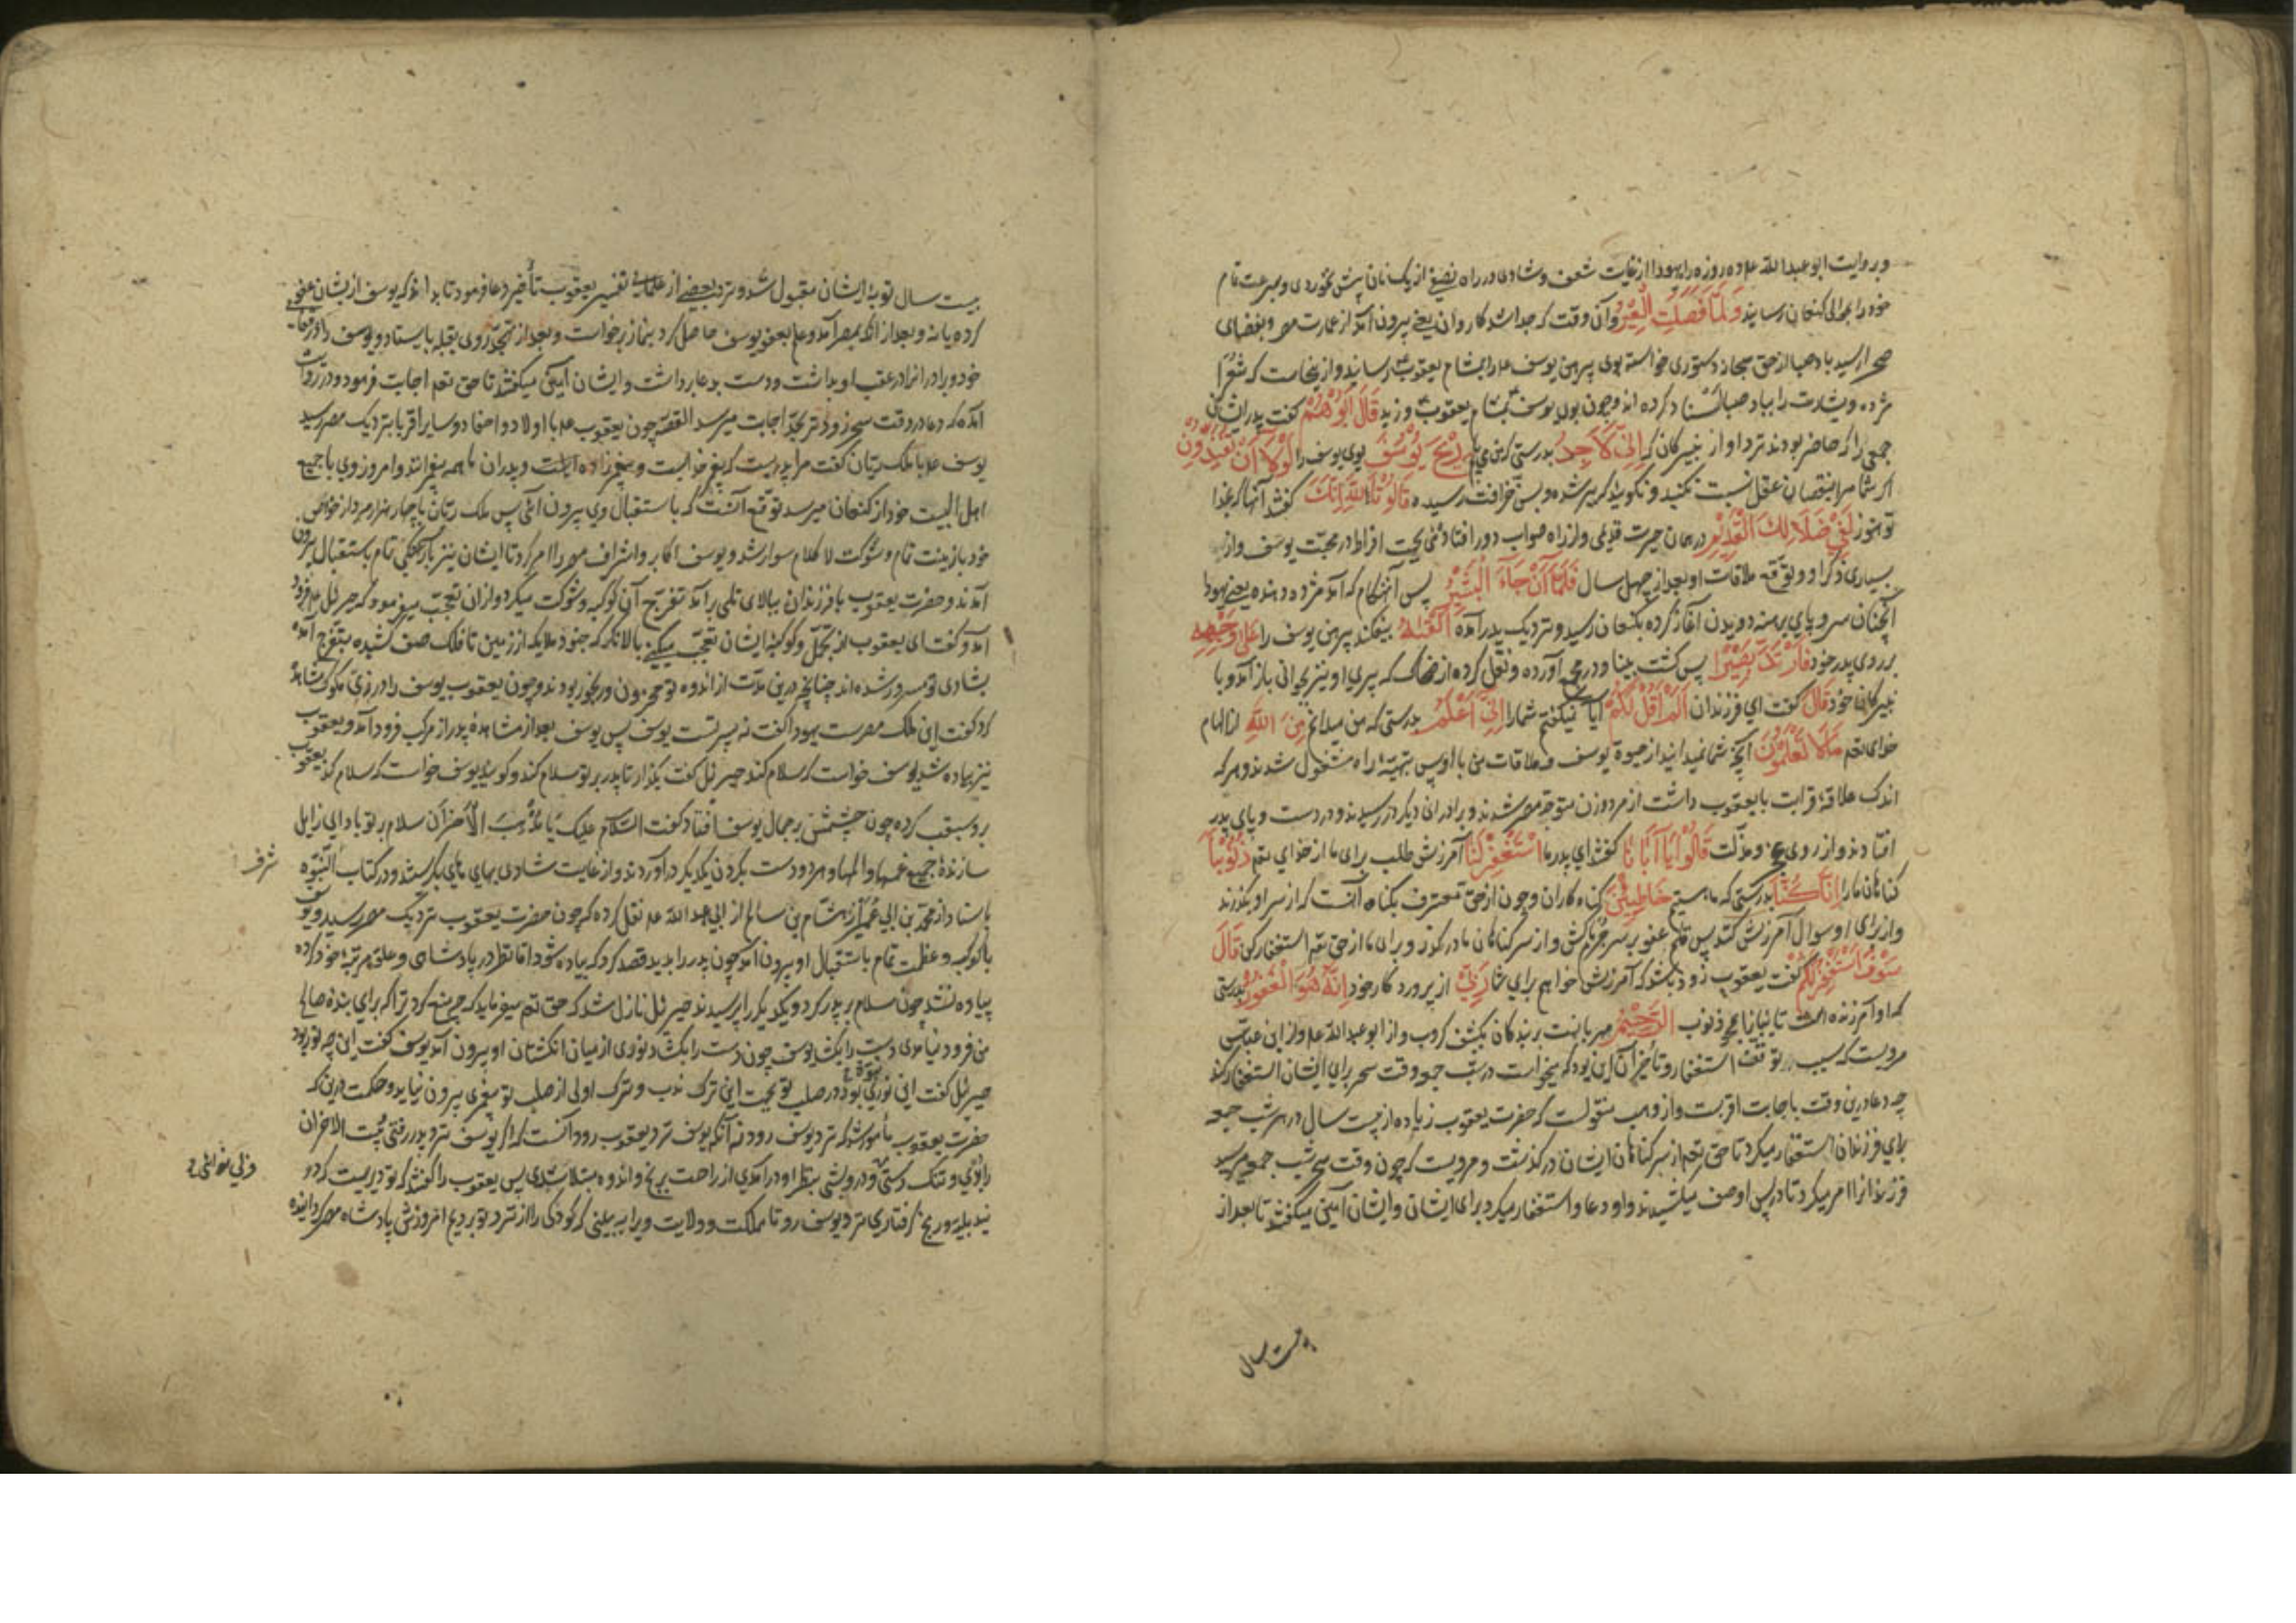 وبروایت ابو عبدالله عم ده روزه راه یهودا از غایت شعف و شادی در راه نصفی از یک نان پیش نخوردی و بسرعت تمام
خود را بحوالی کنعان رسانید وَلَمَّا فَصَلَتِ الْعِيرُ و آن وقت که جدا شد کاروان یعنی بیرون آمد از عمارت مصر و بفضای
صحرا رسید باد صبا از حق سبحانه دستوری خواسته بوی پیرهن یوسف عم را بمشام یعقوب رسانید و ازینجاست که شعرا
مژده و بشارت را بباد صبا اسناد کرده اند و چون بوی یوسف بمشام یعقوب وزید قَالَ أَبُوهُمْ گفت پدر ایشان
جمعی را که حاضر بودند نزد او از نبیرگان که إِنِّي لَأَجِدُ بدرستی که من می یابم رِيحَ يُوسُفَ بوی یوسف را لَوْلَا أَنْ تُفَنِّدُونِ
اگر شما مرا بنقصان عقل نسبت نکنید و نگویید که پیر شده و بسن خرافت رسیده قَالُوا تَاللَّهِ إِنَّكَ گفتند آنها که بخدا
تو هنوز لَفِي ضَلَالِكَ الْقَدِيمِ در همان حیرت قدیمی و از راه صواب دور افتاده‌ئی بجهت افراط در محبت یوسف و از
بسیاری ذکر او و توقع ملاقات او بعد از چهل سال فَلَمَّا أَنْ جَاءَ الْبَشِيرُ پس آنهنگام که آمد مژده دهنده یعنی یهودا
آنچنان سر و پای برهنه دویدن آغاز کرده بکنعان رسید و نزدیک پدر آمده أَلْقَاهُ بیفکند پیرهن یوسف را عَلَى وَجْهِهِ
بر روی پدر خود فَارْتَدَّ بَصِيرًا پس گشت بینا و در مجمع آورده و نقل کرده از ضحاک که پیری او نیز بجوانی باز آمد و با
نبیرگان خود قَالَ گفت ای فرزندان أَلَمْ أَقُلْ لَكُمْ آیا نمیگفتم شما را إِنِّي أَعْلَمُ بدرستی که من میدانم مِنَ اللَّهِ از الهام
خدای تعم مَا لَا تَعْلَمُونَ آنچه شما نمیدانید از حیوة یوسف و ملاقات من با او پس بتهیئه راه مشغول شدند و هر که
اندک علاقه قرابت با یعقوب داشت از مرد و زن متوجه مصر شدند و برادران دیگر در رسیدند و در دست و پای پدر
افتادند و از روی عجز و مذلت قَالُوا يَا أَبَانَا گفتند ای پدر ما اسْتَغْفِرْ لَنَا آمرزش طلب برای ما از خدای تعم ذُنُوبَنَا
گناهان ما را إِنَّا كُنَّا بدرستی که ما هستیم خَاطِئِينَ گناه کاران و چون از حق معترف بگناه آنست که از سر او بگذرند
و از برای او سوال آمرزش کنند پس قلم عفو بر سر جرم ما کش و از سر گناهان ما درگذر و برای ما از حق تعم استغفار کن قَالَ
سَوْفَ أَسْتَغْفِرُ لَكُمْ گفت یعقوب زود باشد که آمرزش خواهم برای شما رَبِّي از پروردگار خود إِنَّهُ هُوَ الْغَفُورُ بدرستی
که او آمرزنده است تایبانرا بمحو ذنوب الرَّحِيمُ مهربانست بر بندگان بکشف کروب و از ابو عبدالله عم و از ابن عباس
مرویست که سبب توقف استغفار و تأخیر آن این بود که میخواست در شب جمعه وقت سحر برای ایشان استغفار کند
چه دعا درین وقت باجابت اقربست و از وهب منقولست که حضرت یعقوب زیاده از بیست سال در هر شب جمعه
برای فرزندان استغفار میکرد تا حق تعم از سر گناهان ایشان در گذشت و مرویست که چون وقت سحر شب جمعه میرسید
فرزندانرا امر میکرد تا در پس او صف میکشیدند و او دعا و استغفار میکرد برای ایشان و ایشان آمین میگفتند تا بعد از
بیست سال
بیست سال توبهٔ ایشان مقبول شد و نزد بعضی از علمای تفسیر یعقوب تأخیر دعا فرمود تا بداند که یوسف از یشان عفو
کرده یا نه و بعد از آنکه بمصر آمد و علم بعفو یوسف حاصل کرد بنماز برخاست و بعد از تهجد روی بقبله بایستاد و یوسف را در قفای
خود و برادرانرا در عقب او بداشت و دست بدعا برداشت و ایشان آمین میگفتند تا حق تعم اجابت فرمود و در روایت
آمده که دعا در وقت سحر زودتر بحد اجابت میرسد القصه چون یعقوب عم با اولاد و احفاد و سایر اقربا بنزدیک مصر رسید
یوسف عم با ملک ریّان گفت مرا پدریست که پیغمبر خداست و پیغمبرزاده است و پدران ما همه پیغمبرانند و امروز وی با جمیع
اهل البیت خود از کنعان میرسد توقع آنست که باستقبال وی بیرون آئی پس ملک ریّان با چهار هزار مرد از خواص
خود با زینت تمام و شوکت لا کلام سوار شد و یوسف اکابر و اشراف مصر را امر کرد تا ایشان نیز باراستگی تمام باستقبال بیرون
آمدند و حضرت یعقوب با فرزندان ببالای تلی برآمد تفرج آن کوکبه و شوکت میکرد و از ان تعجب میفرمود که جبرئیل عم فرود
آمد و گفت ای یعقوب از تجمل و کوکبهٔ ایشان تعجب میکنی بالا نگر که جنود ملایکه از زمین تا فلک صف کشیده بتفرج آمده
بشادی تو مسرور شده اند چنانچه درین مدت از اندوه تو محزون و رنجور بودند و چون یعقوب یوسف را در زی ملوک مشاهده
کرد گفت این ملک مصرست یهودا گفت نه پسر تست یوسف پس یوسف بعد از مشاهدهٔ پدر از مرکب فرود آمد و یعقوب
نیز پیاده شد یوسف خواست که سلام کند جبرئیل گفت بگذار تا پدر بر تو سلام کند و گویند یوسف خواست که سلام کند یعقوب
برو سبقت کرده چون چشمش بر جمال یوسف افتاد گفت السلام علیک یا مُذْهِبَ الْأَحْزَانِ سلام بر تو باد ای زایل
سازندهٔ جمیع غمها و المها و هر دو دست بگردن یکدیگر درآوردند و از غایت شادی بهای هایی بگریستند و در کتاب النبوة
باسناد از محمد بن ابی عمیر از هشام بن سالم از ابی عبدالله عم نقل کرده که چون حضرت یعقوب نزدیک مصر رسید و یوسف
با کوکبه و عظمت تمام باستقبال او بیرون آمد چون پدر را بدید قصد کرد که پیاده شود اما نظر در پادشاهی و علو مرتبهٔ خود کرده
پیاده نشد چون سلام بر پدر کرد و یکدیگر را پرسیدند جبرئیل نازل شد که حق تعم میفرماید که چه منع کرد ترا که برای بندهٔ صالح
من فرود نیامدی دست را بکشا یوسف چون دست را بکشاد نوری از میان انگشتان او بیرون آمد یوسف گفت این چه نور بود
جبرئیل گفت این نور نبوت بود در صلب تو بجهت این ترک ندب و ترک اولی از صلب تو پیغمبری بیرون نیاید و حکمت درین که
حضرت یعقوب مأمور شد که نزد یوسف رود نه آنکه یوسف نزد یعقوب رود آنست که اگر یوسف نزد پدر رفتی بیت الاحزان
را دیدی و تنگ دستی و درویشی بنظر او درآمدی از راحت برنج و اندوه مبتلا شدی پس یعقوب را گفتند که تو دیریست که در
بلیه و رنج گرفتاری نزد یوسف رو تا مملکت و ولایت ویرا به بینی که کودکی را از نزد تو بردیم امروزش پادشاه مصر گردانیده
شرف